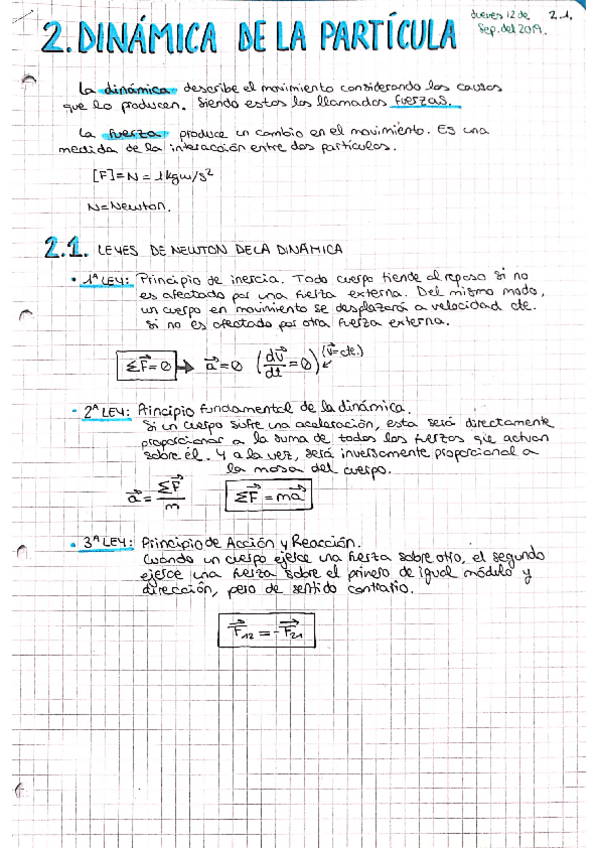 Jueves 12 de
Sep. del 2019.
2.1.
2. DINÁMICA DE LA PARTÍCULA
La dinámica describe el movimiento considerando las causas
que lo producen. Siendo estas las llamadas fuerzas.
La fuerza produce un cambio en el movimiento. Es una
medida de la interacción entre dos partículas.
[F]=N = 1kgm/s²
N=Newton.
2.1. LEYES DE NEWTON DE LA DINÁMICA
• 1ª LEY: Principio de inercia. Todo cuerpo tiende al reposo si no
es afectado por una fuerza externa. Del mismo modo,
un cuerpo en movimiento se desplazará a velocidad cte.
si no es afectado por otra fuerza externa.
ΣF⃗=0 → a⃗=0 (dv⃗/dt=0) (v⃗=cte.)
• 2ª LEY: Principio fundamental de la dinámica.
Si un cuerpo sufre una aceleración, esta será directamente
proporcional a la suma de todas las fuerzas que actúan
sobre él. Y a la vez, será inversamente proporcional a
la masa del cuerpo.
a⃗ = ΣF⃗/m ΣF⃗ = ma⃗
• 3ª LEY: Principio de Acción y Reacción.
Cuando un cuerpo ejerce una fuerza sobre otro, el segundo
ejerce una fuerza sobre el primero de igual módulo y
dirección, pero de sentido contrario.
F⃗₁₂ = -F⃗₂₁